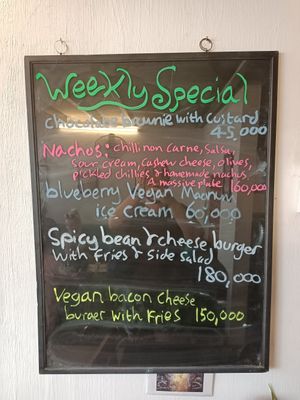 Weekly Special
chocolate brownie with custard
45,000
Nachos: chilli non carne, salsa,
sour cream, cashew cheese, olives,
pickled chillies & homemade nachos
A massive plate 160,000
blueberry Vegan Magnum
ice cream 60,000
Spicy bean & cheese burger
with fries & side salad
180,000
Vegan bacon cheese
burger with fries 150,000